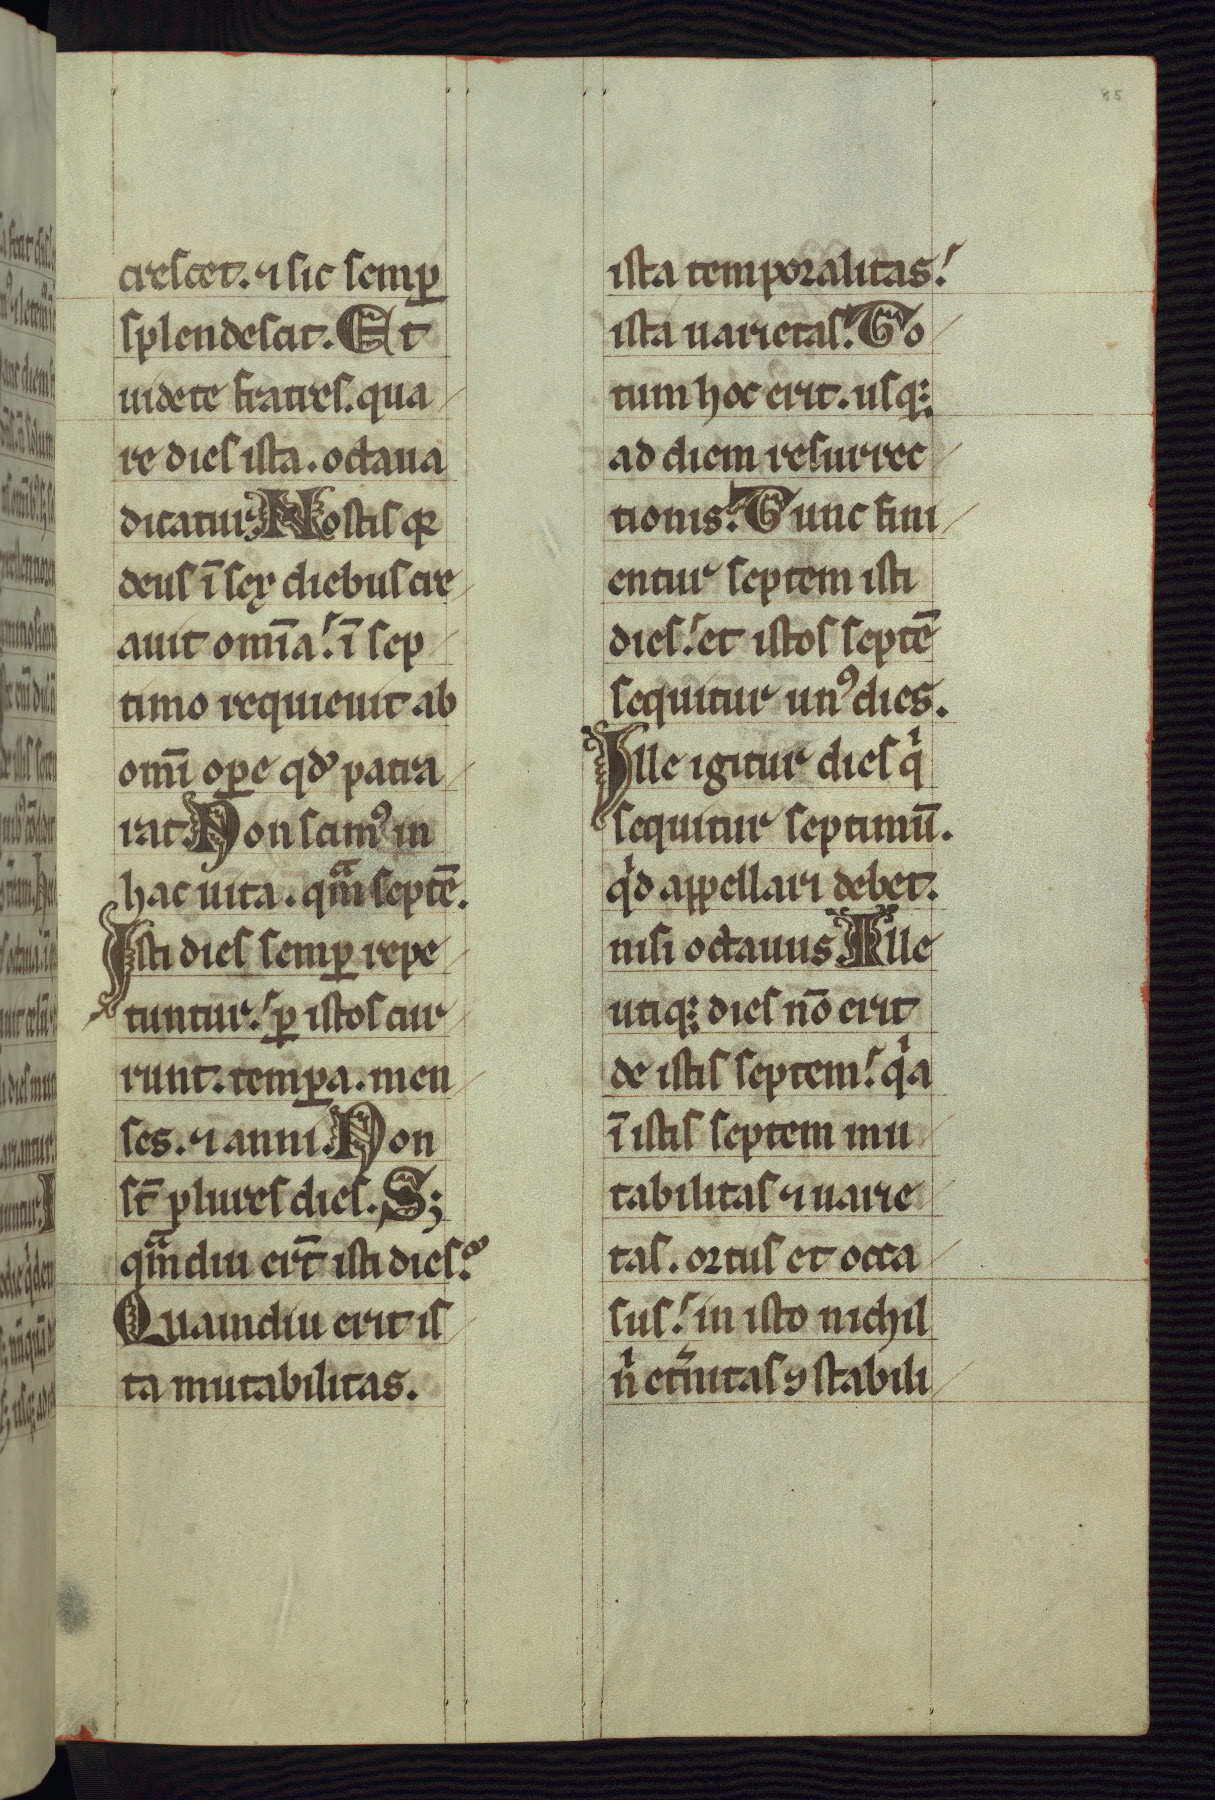 85
crescet. ⁊ sic semꝑ
splendescit. Et
uidete fratres. qua
re dies ista. octaua
dicatur? Nostis qꝛ
deus ī sex diebus cre
auit om̄ia. ī sep
timo requieuit ab
om̄i oꝑe qd̾ patra
rat. Non sumꝰ in
hac uita. qm̅ septē.
Isti dies semꝑ repe
tuntur. ꝑ istos cur
runt. temꝑa. men
ses. ⁊ anni. Non
st̄ plures dies. Sꝫ
qᷓm diu er̄t isti dies?
Quamdiu erit is
ta mutabilitas.
ista temporalitas.
ista uarietas. To
tum hoc erit. usqꝫ
ad diem resurrec
tionis. Tunc fini
entur septem isti
dies. et istos septē
sequitur unꝰ dies.
Ille igitur dies qͥ
sequitur septimū.
qͥd appellari debet.
nisi octauus. Ille
utiqꝫ dies nō erit
de istis septem. qͥa
ī istis septem mu
tabilitas ⁊ uarie
tas. ortus et occa
sus. in isto nichil
nͥ et̾nitas ꝯstabili